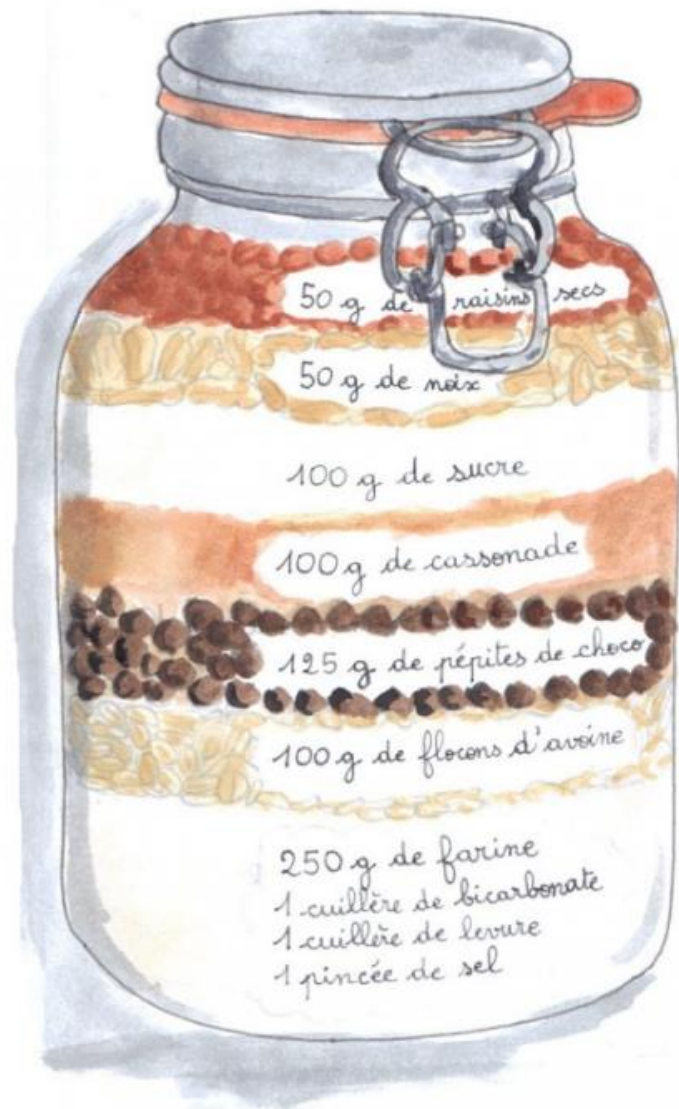 50 g de raisins secs
50 g de noix
100 g de sucre
100 g de cassonade
125 g de pépites de choco
100 g de flocons d'avoine
250 g de farine
1 cuillère de bicarbonate
1 cuillère de levure
1 pincée de sel